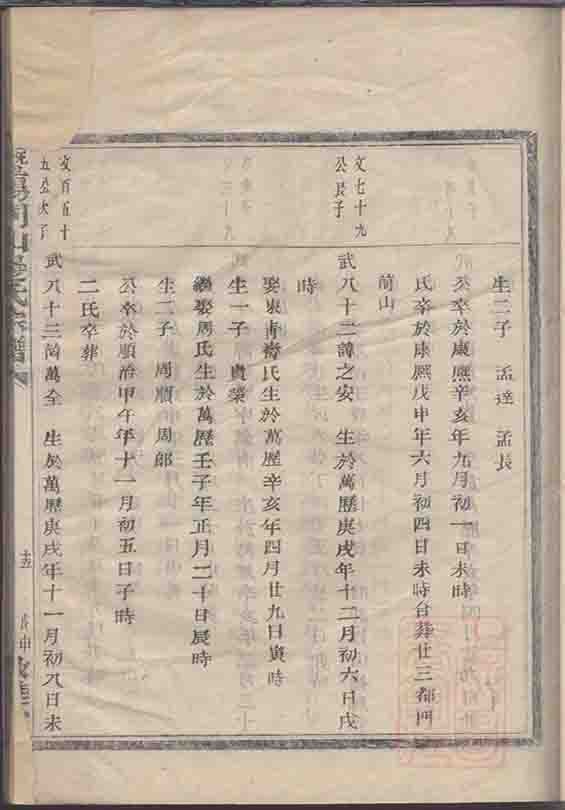 生二子 孟達 孟長
公卒於康熙辛亥年九月初一日未時
氏卒於康熙戊申年六月初四日未時合葬廿三都河
前山
文七十九
公長子
武八十二諱之安 生於萬歷庚戌年十二月初六日戌
時
娶東青斎氏生於萬歷辛亥年四月廿九日寅時
生一子 貴榮
繼娶周氏生於萬歷壬子年正月二十日辰時
生二子 周順 周郎
公卒於順治甲午年十一月初五日子時
二氏卒葬
文百五十
五公次子
武八十三諱萬全 生於萬歷庚戌年十一月初八日未
氏宗譜